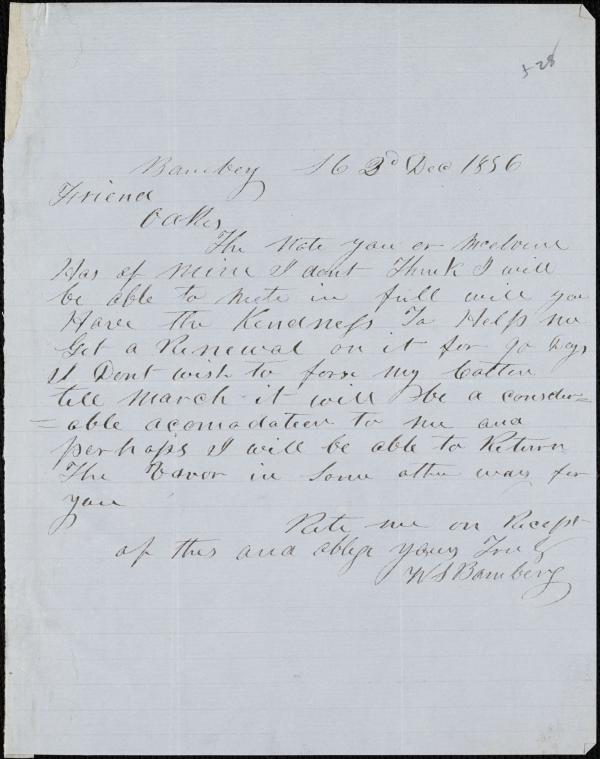 528
Bambeg SC 3d Dec 1856
Friend
Oakes
The Note you or McElvene
Has of Mine I dont Think I will
be able to mete in full will you
Have the Kindness To Help me
Get a Renewal on it for 90 Days
I Dont wish to forse my Cotten
till March it will be a consider=
=able acomadation to me and
perhaps I will be able to Return
The Favor in Some other way for
you
Rite me on Recept
of this and oblige yours Truly
W S Bamberg